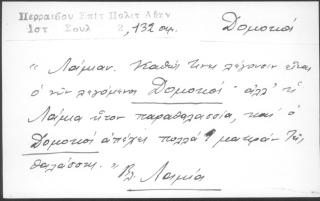 Περραιβού Επίτ Πολιτ Αθην
Ιστ Σουλ 2, 132 σημ. Δομοκοί
" Λάμιαν. Καθώς τινες λέγουσιν είναι
ο νυν λεγόμενος Δομοκοί · αλλ' η
Λάμια ήτον παραθαλασσία, και ο
Δομοκοί απέχει πολλά μακράν της
θαλάσσης. " Βλ. Λαμία